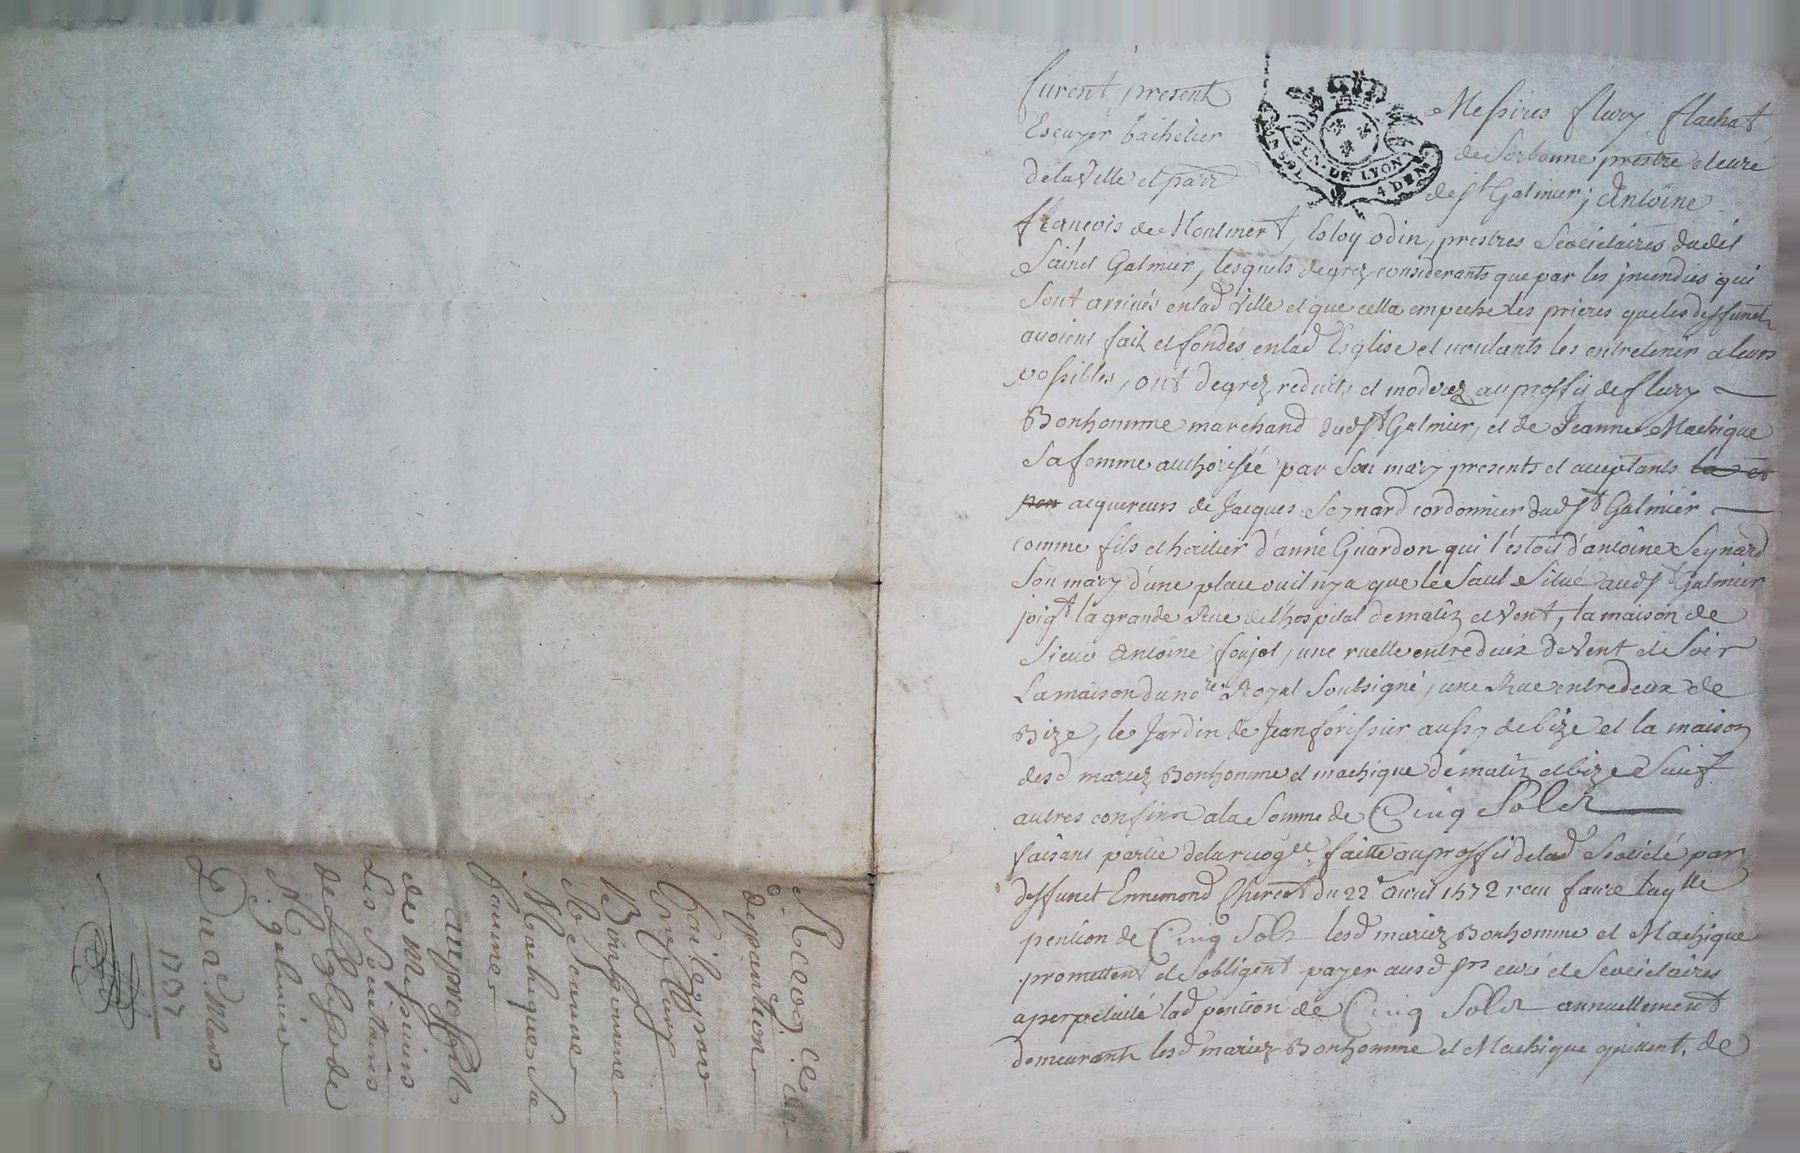 furent present Messires flury flachat
Escuyer bachelier de Sorbonne prestre et curé
de la Ville et parr de st Galmier; Antoine
françois de Montmert, Eloy odin, prestres Sociétaires dudit
Sainct Galmier, lesquels de grez considerants que par les jncendies qui
sont arrivés en lad Ville et que cella empeche les prieres que les deffunct
avoient fait et fondés en lad Esglise et voulants les entretenir a leurs
possibles, ont de grez reduits et moderez au proffis de flury
Bonhomme marchand dud st Galmier, et de Jeanne Machique
sa femme authorisée par son mary presents et acceptants
acquereurs de Jacques Seynard cordonnier dud st Galmier
comme fils et haitier d'anne Guardon qui l'estois d'antoine Seynard
son mary d'une place ou il ny a que le Saul situé aud st Galmier
joigt la grande Rue de l'hospital de matin et vent, la maison de
sieur Antoine foujol, une ruelle entre deux de Vent et soir
La maison du nore Royal soubsigné, une Rue entre deux de
Bize, le Jardin de Jean forissier aussy de bize et la maison
desd mariez Bonhomme et machique de matin et bize Sauf
autres confins a la somme de Cinq Solz
faisant partie de la recogce faitte au proffis de lad Société par
deffunct Ennemond Cherent du 22e avril 1672 recu faure
pention de Cinq Solz lesd mariez Bonhomme et Machique
promettent et s'obligent payer ausd srs curé et Sociétaires
a perpetuité lad pention de Cinq Solz annuellement
demeurants lesd mariez Bonhomme et Machique quittent, de
Recog.ce de
de pantion
fait par
Sr flury
Bonhomme
& Jeanne
Machique Sa
famme
au proffit
de Messieurs
Les Soietains
de Leglise de
St galmier
Du 2 Mars
1737
GEN. DE LYON
4 DEN